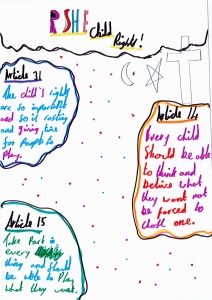 PSHE Child
Rights!
Article 31
The child's rights
are so important
and so is resting
and giving time
for People to
Play.
Article 14
Every child
Should be able
to think and
believe what
they want not
be forced to
one.
Article 15
Take Part in
every
thing and Should
be able to Play
what they want.